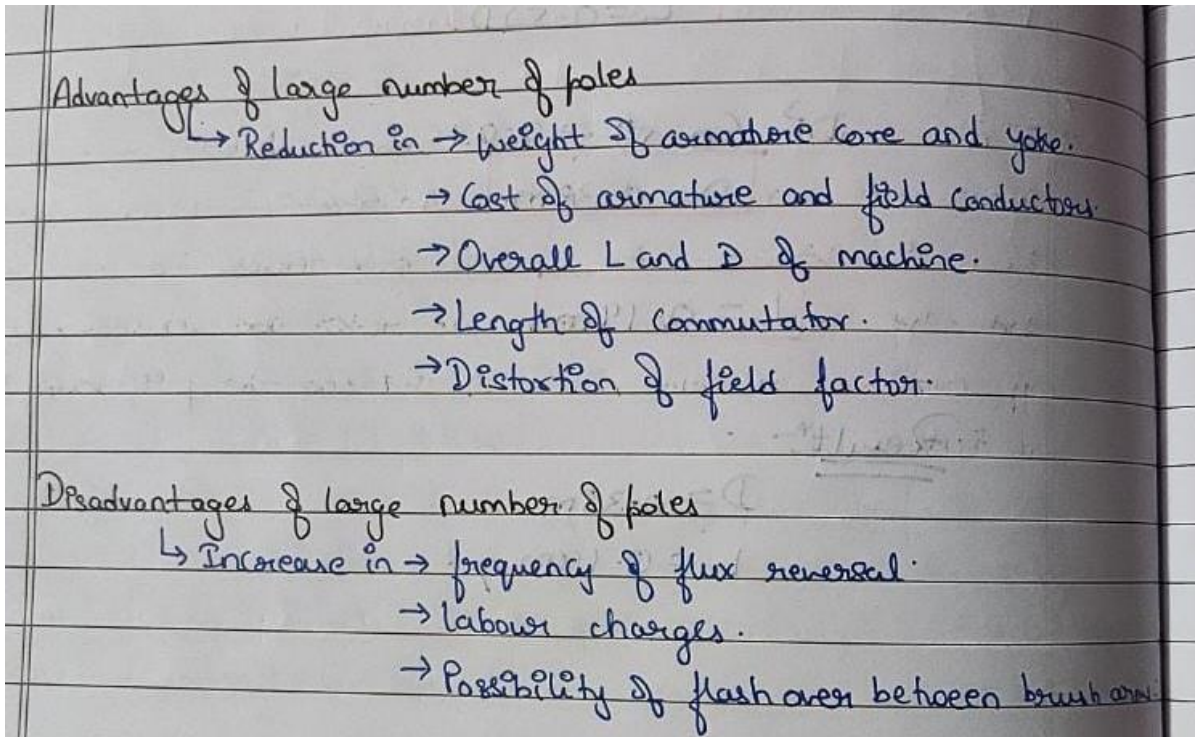 Advantages of large number of poles
↳ Reduction in → weight of armature core and yoke.
→ Cost of armature and field conductors.
→ Overall L and D of machine.
→ Length of commutator.
→ Distortion of field factor.
Disadvantages of large number of poles
↳ Increase in → frequency of flux reversal.
→ Labour charges.
→ Possibility of flash over between brush